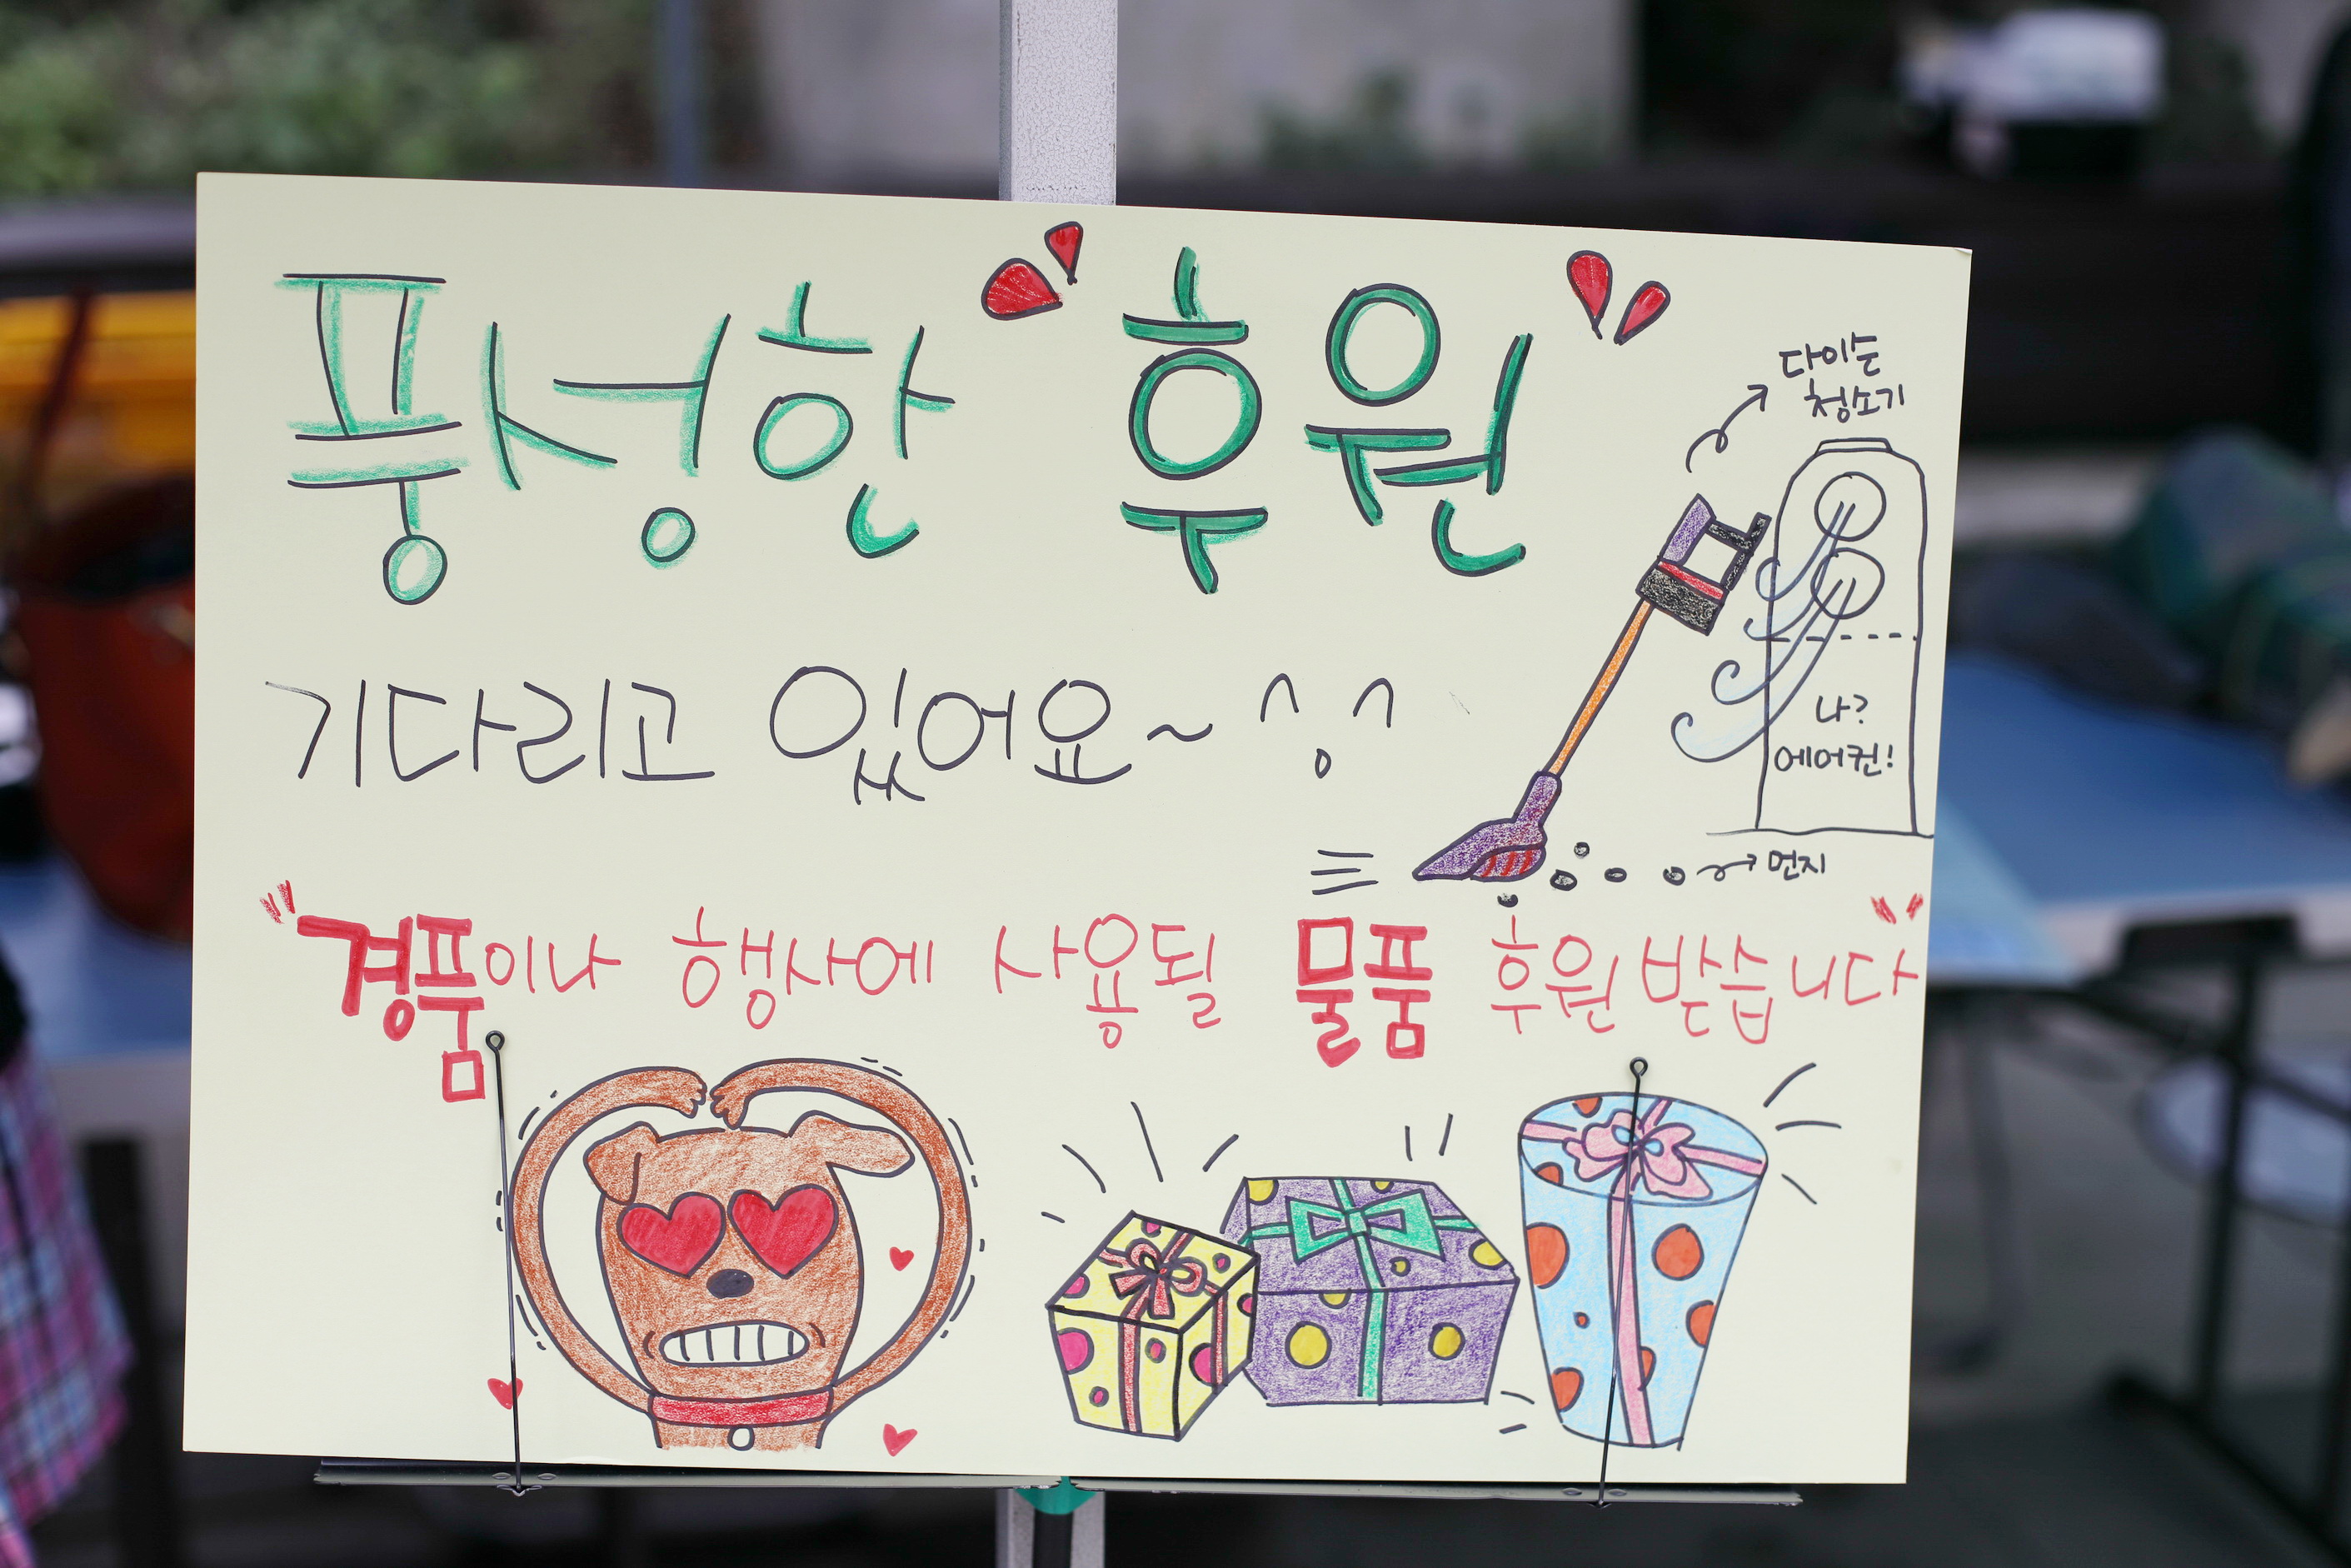 풍성한 후원
다이슨
청소기
기다리고 있어요~ ^.^
나?
에어컨!
먼지
"경품이나 행사에 사용될 물품 후원 받습니다"